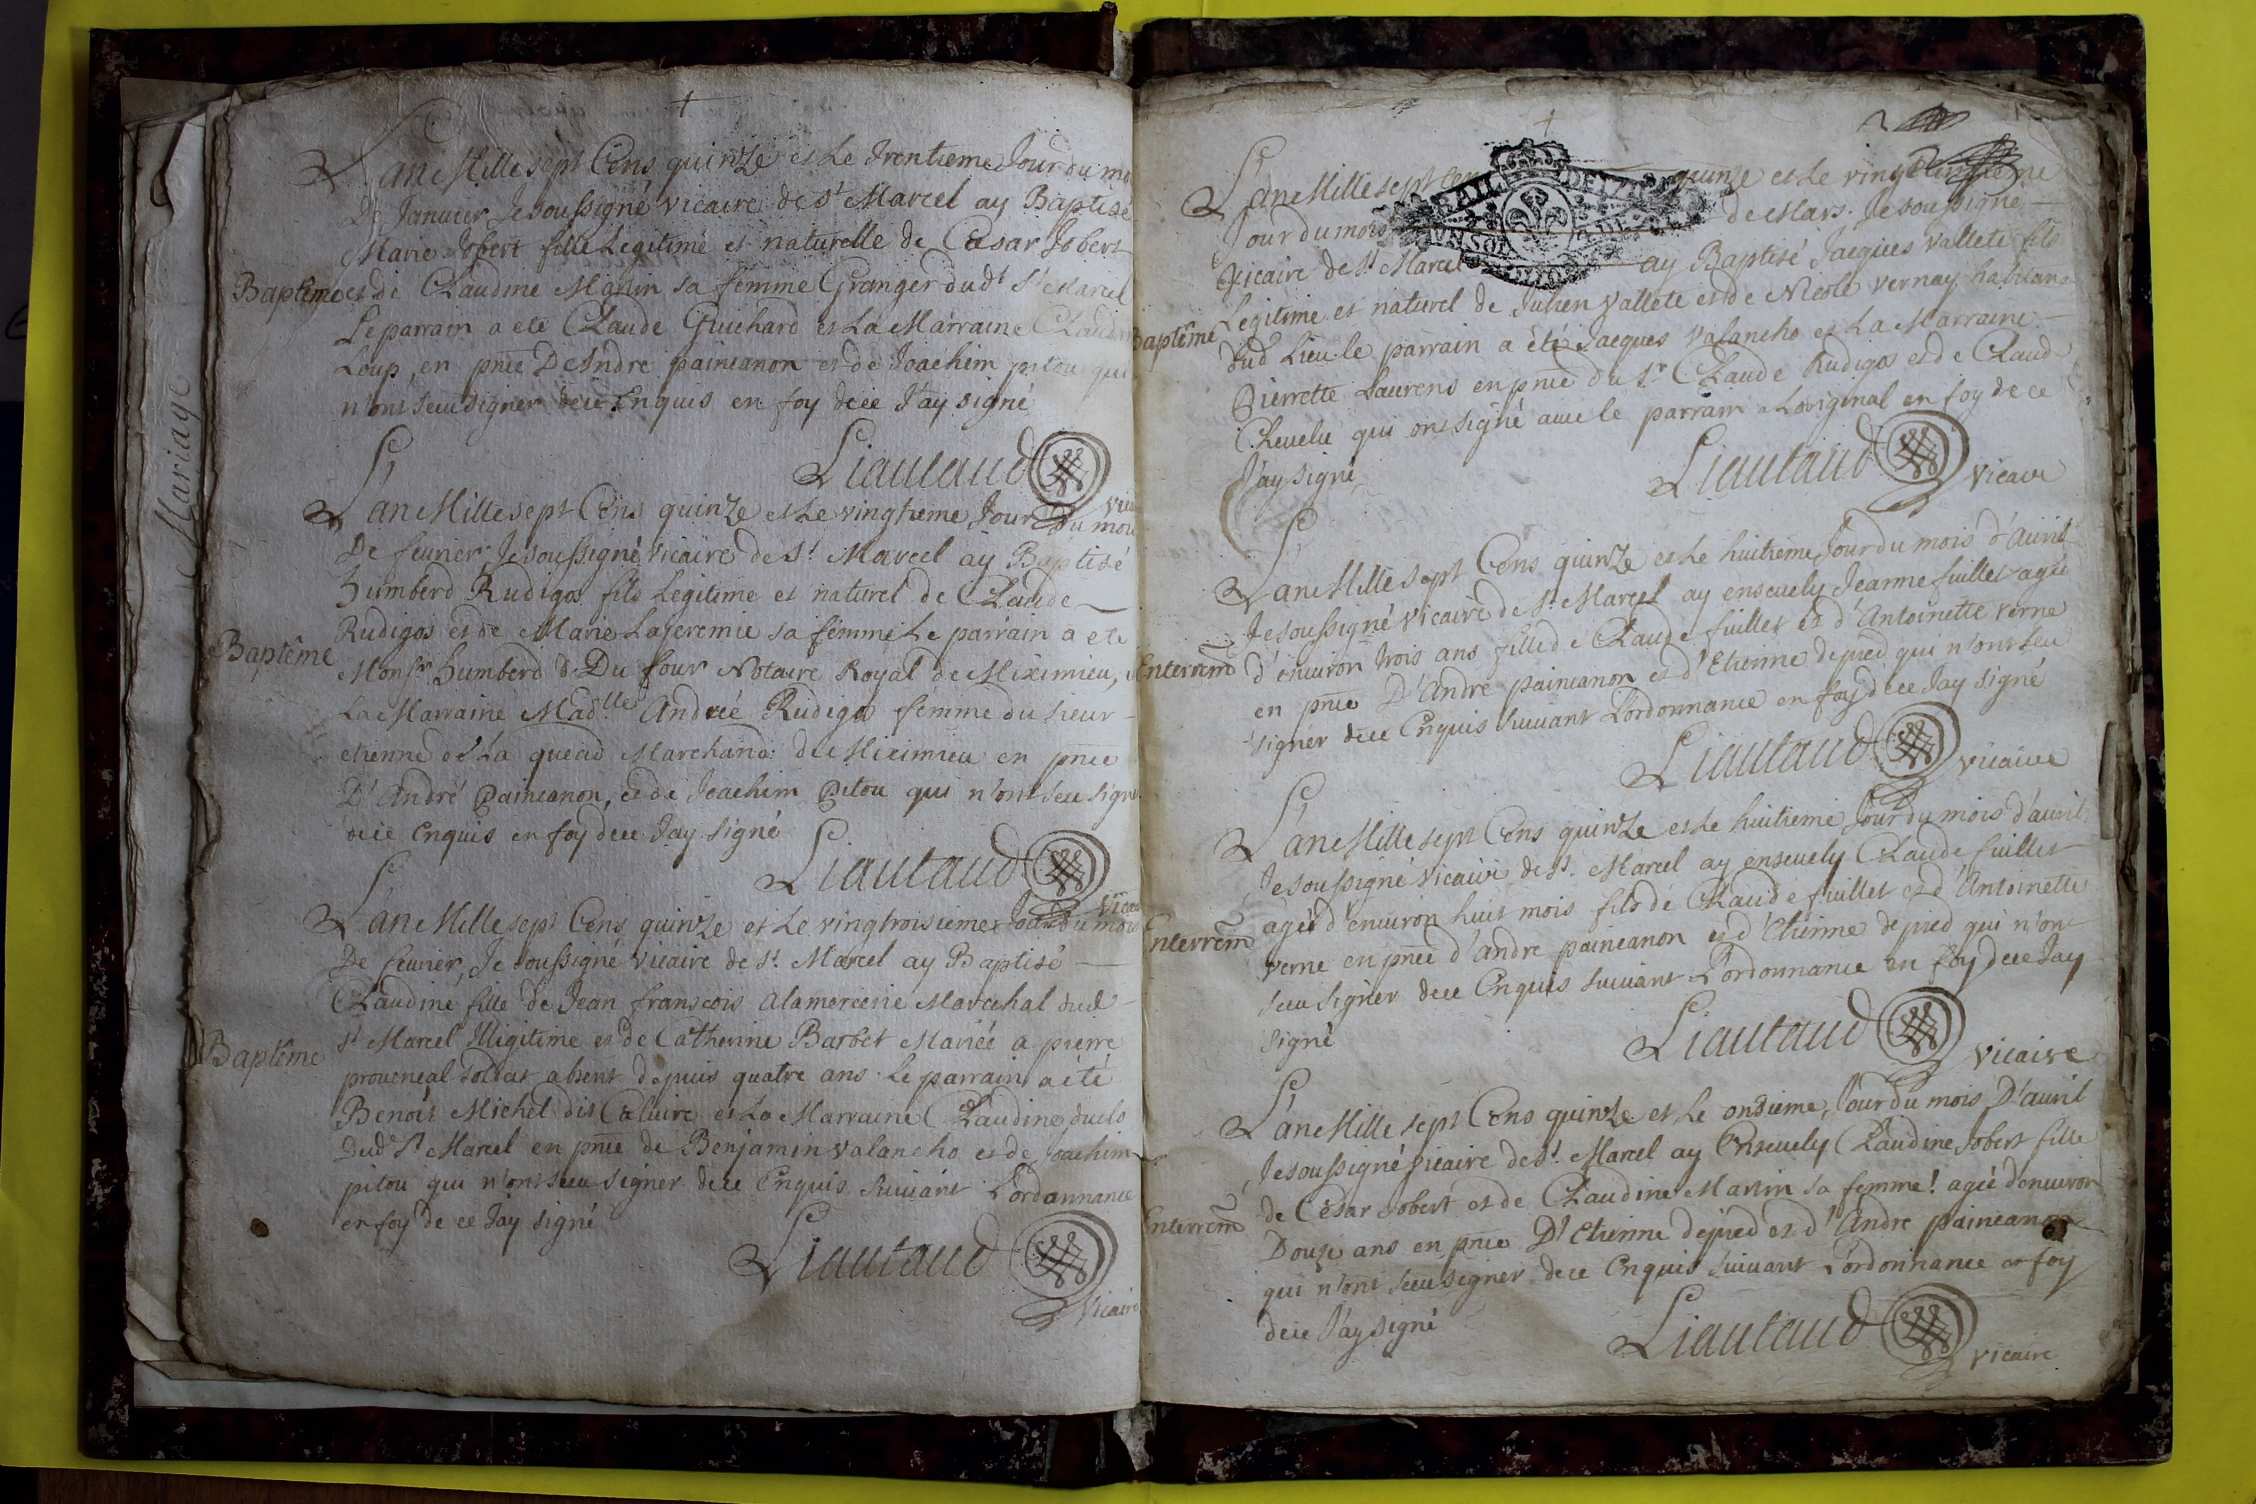 Mariage
L'an Mille sept Cens quinze et Le Trentieme Jour du moi
De Januier, Je soussigné vicaire de St Marcel ay Baptisé
Marie Jobert fille Legitime et naturelle de Cæsar Jobert
Baptême et de Claudine Martin sa femme Granger dudt St Marcel
Le parrain a eté Claude Guichard et La Marraine Claudin
Loup, en pnce D'Andre paincanon et de Joachim pitou qui
n'ont sceu signer dece Enquis en foy dece J'ay signé
Liautaud vicai
L'an Mille sept Cens quinze et Le vingtieme Jour du mois
De feurier, Je soussigné vicaire de St Marcel ay Baptisé
humberd Rudigos fils Legitime et naturel de Claude
Rudigos et de Marie Lajeremie sa femme Le parrain a ete
Baptême
Monsr humberd Du four Notaire Royal de Miximieu,
La Marraine Madlle Andreé Rudigos femme du sieur
etienne de La queud Marchand de Miximieu en pnce
D'André Paincanon, et de Joachim Pitou qui n'ont sceu signe
dece Enquis en foy dece Jay signé
Liautaud vicai
L'an Mille sept Cens quinze et Le vingtroisieme Jour du mois
De feurier, Je soussigné vicaire de St Marcel ay Baptisé
Claudine fille de Jean franscois alamercerie Marechal dud
Baptême
St Marcel Illigitime et de Catherine Barbet Mariée a pierre
prouencal soldat absent depuis quatre ans. Le parrain a été
Benoit Michel dit Caluire et La Marraine Claudine
Dudt St Marcel en pnce de Benjamin valancho et de Joachim
pitou qui n'ont sceu signer dece Enquis suiuant L'ordonnance
en foy de ce Jay signé
Liautaud
vicaire
2
L'an Mille sept Cens quinze et Le vingt
Jour du mois de Mars. Je soussigné
vicaire de St Marcel ay Baptisé Jacques vallete fils
Legitime et naturel de Julien vallete et de Nicole vernay habitans
Baptême
dud Lieu le parrain a été Jacques valancho et La Marraine
Pierrette Laurens en pnce du Sr Claude Rudigos et de Claude
Cheuelu qui ont signé auec le parrain a Loriginal en foy de ce
J'ay signé Liautaud vicaire
L'an Mille sept Cens quinze et Le huitieme Jour du mois d'auril
Je soussigné vicaire de St Marcel ay enseuely Jeanne fuillet ageé
Enterrem d'enuiron trois ans fille de Claude fuillet et d'Antoinette verne
en pnce D'André paincanon et d'Etienne depied qui n'ont sceu
signer dece Enquis suiuant L'ordonnance en foy dece Jay signé
Liautaud vicaire
L'an Mille sept Cens quinze et Le huitieme Jour du mois d'auril
Je soussigné vicaire de St. Marcel ay enseuely Claude fuillet
agé d'enuiron huit mois fils de Claude fuillet et d'Antoinette
Enterrem
verne en pnce d'andre paincanon et d'Etienne depied qui n'ont
sceu signer dece Enquis suiuant L'ordonnance en foy dece Jay
signé
Liautaud vicaire
L'an Mille sept Cens quinze et Le onzieme, Jour du mois D'auril
Je soussigné vicaire de St. Marcel ay Enseuely Claudine Jobert fille
de César Jobert et de Claudine Martin sa femme! ageé denuiron
Enterrem
Douze ans en pnce D'Etienne depied et d'Andre paincanon
qui n'ont sceu signer dece Enquis suiuant L'ordonnance en foy
dece J'ay signé
Liautaud vicaire